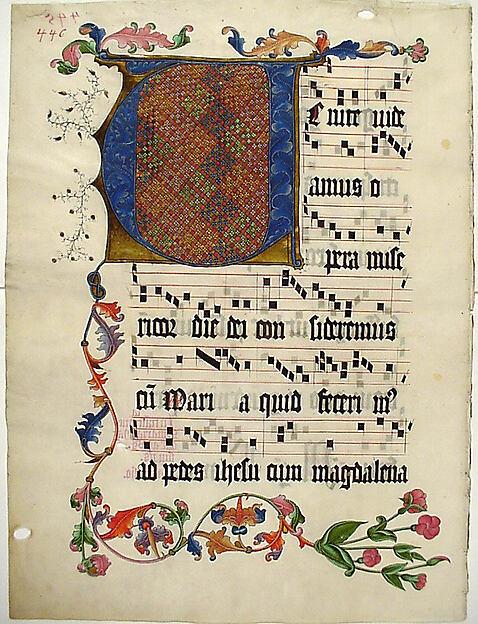 446
U E nite uide
amus o
pera mise
ricor die dei con sideremus
cū Mari a quid feceri mꝰ
ad pedes ihesu cum magdalena